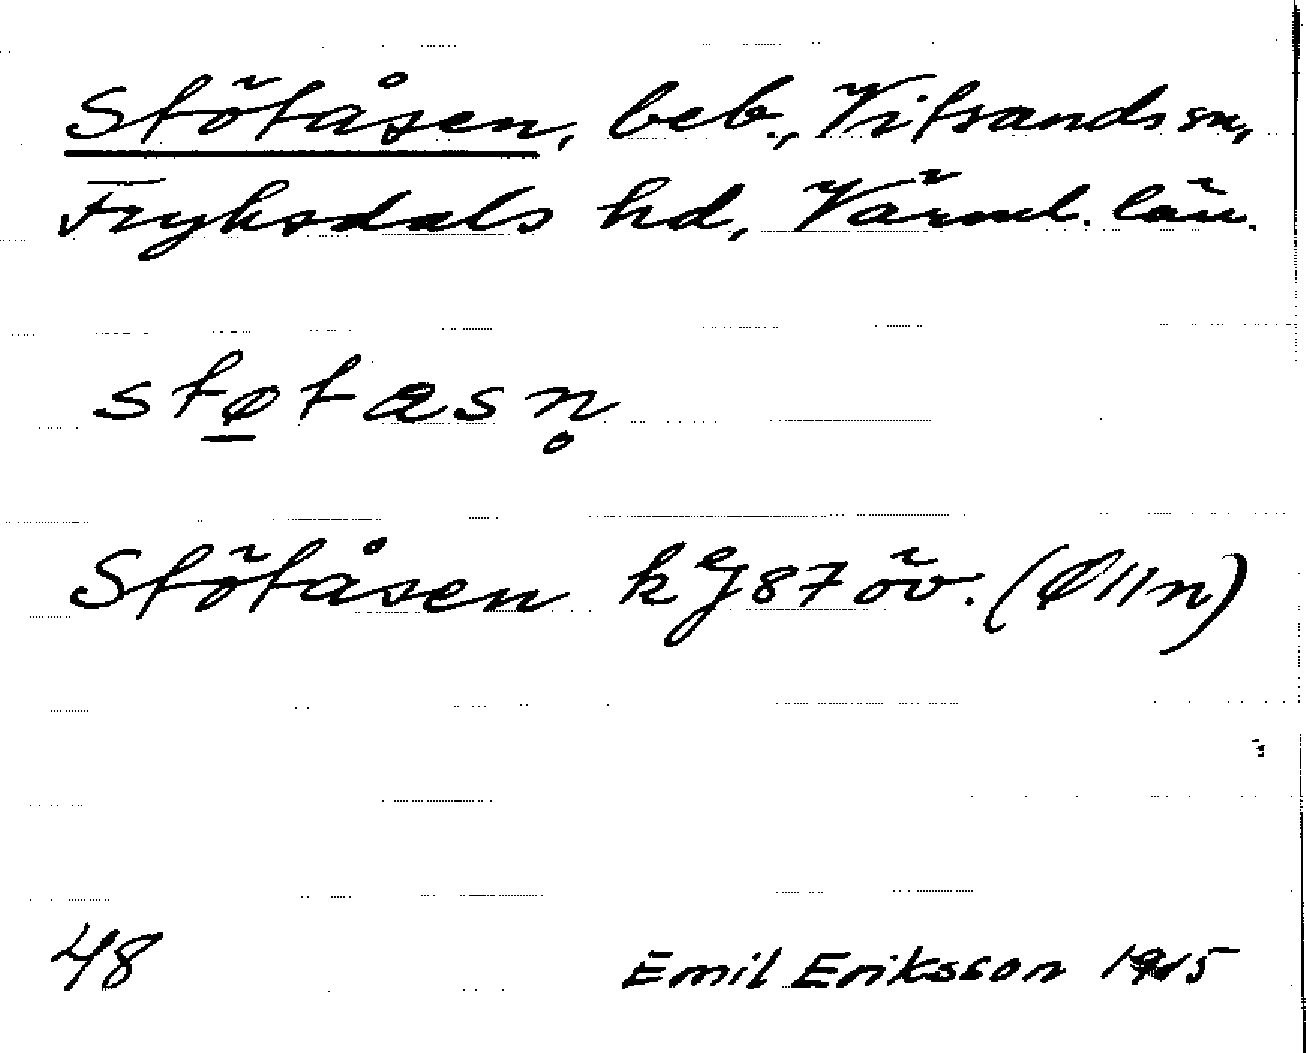 Stötåsen, beb., Vitsands sn,
Fryksdals hd, Värml. län.
støtasn̥
Stötåsen kgl 87 öv. (Ølln)
48
Emil Eriksson 1915